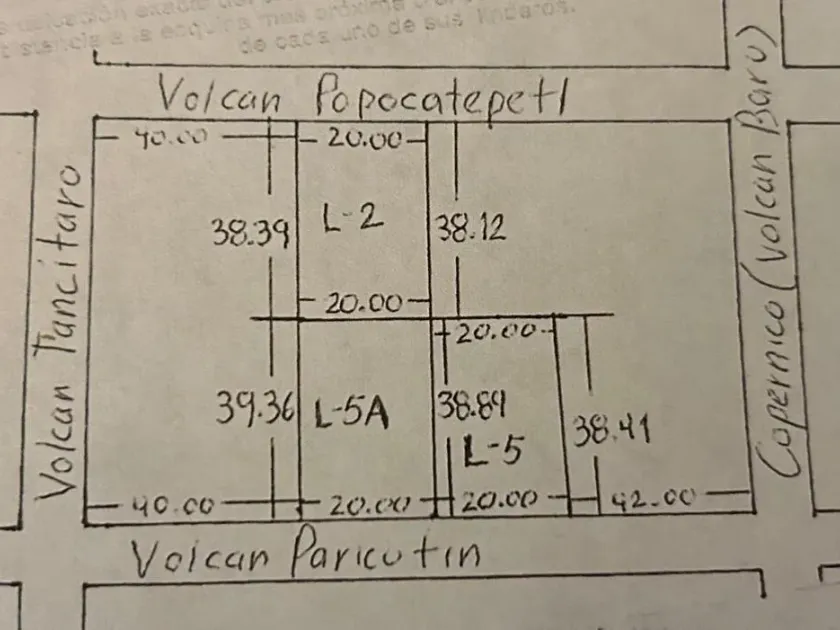 de cada uno de sus linderos.
Volcan Popocatepetl
40.00
20.00
Volcan Tancitaro
38.39
L-2
38.12
Copernico (volcan Baru)
20.00
20.00
39.36
L-5A
38.89
L-5
38.41
40.00
20.00
20.00
42.00
Volcan Paricutin